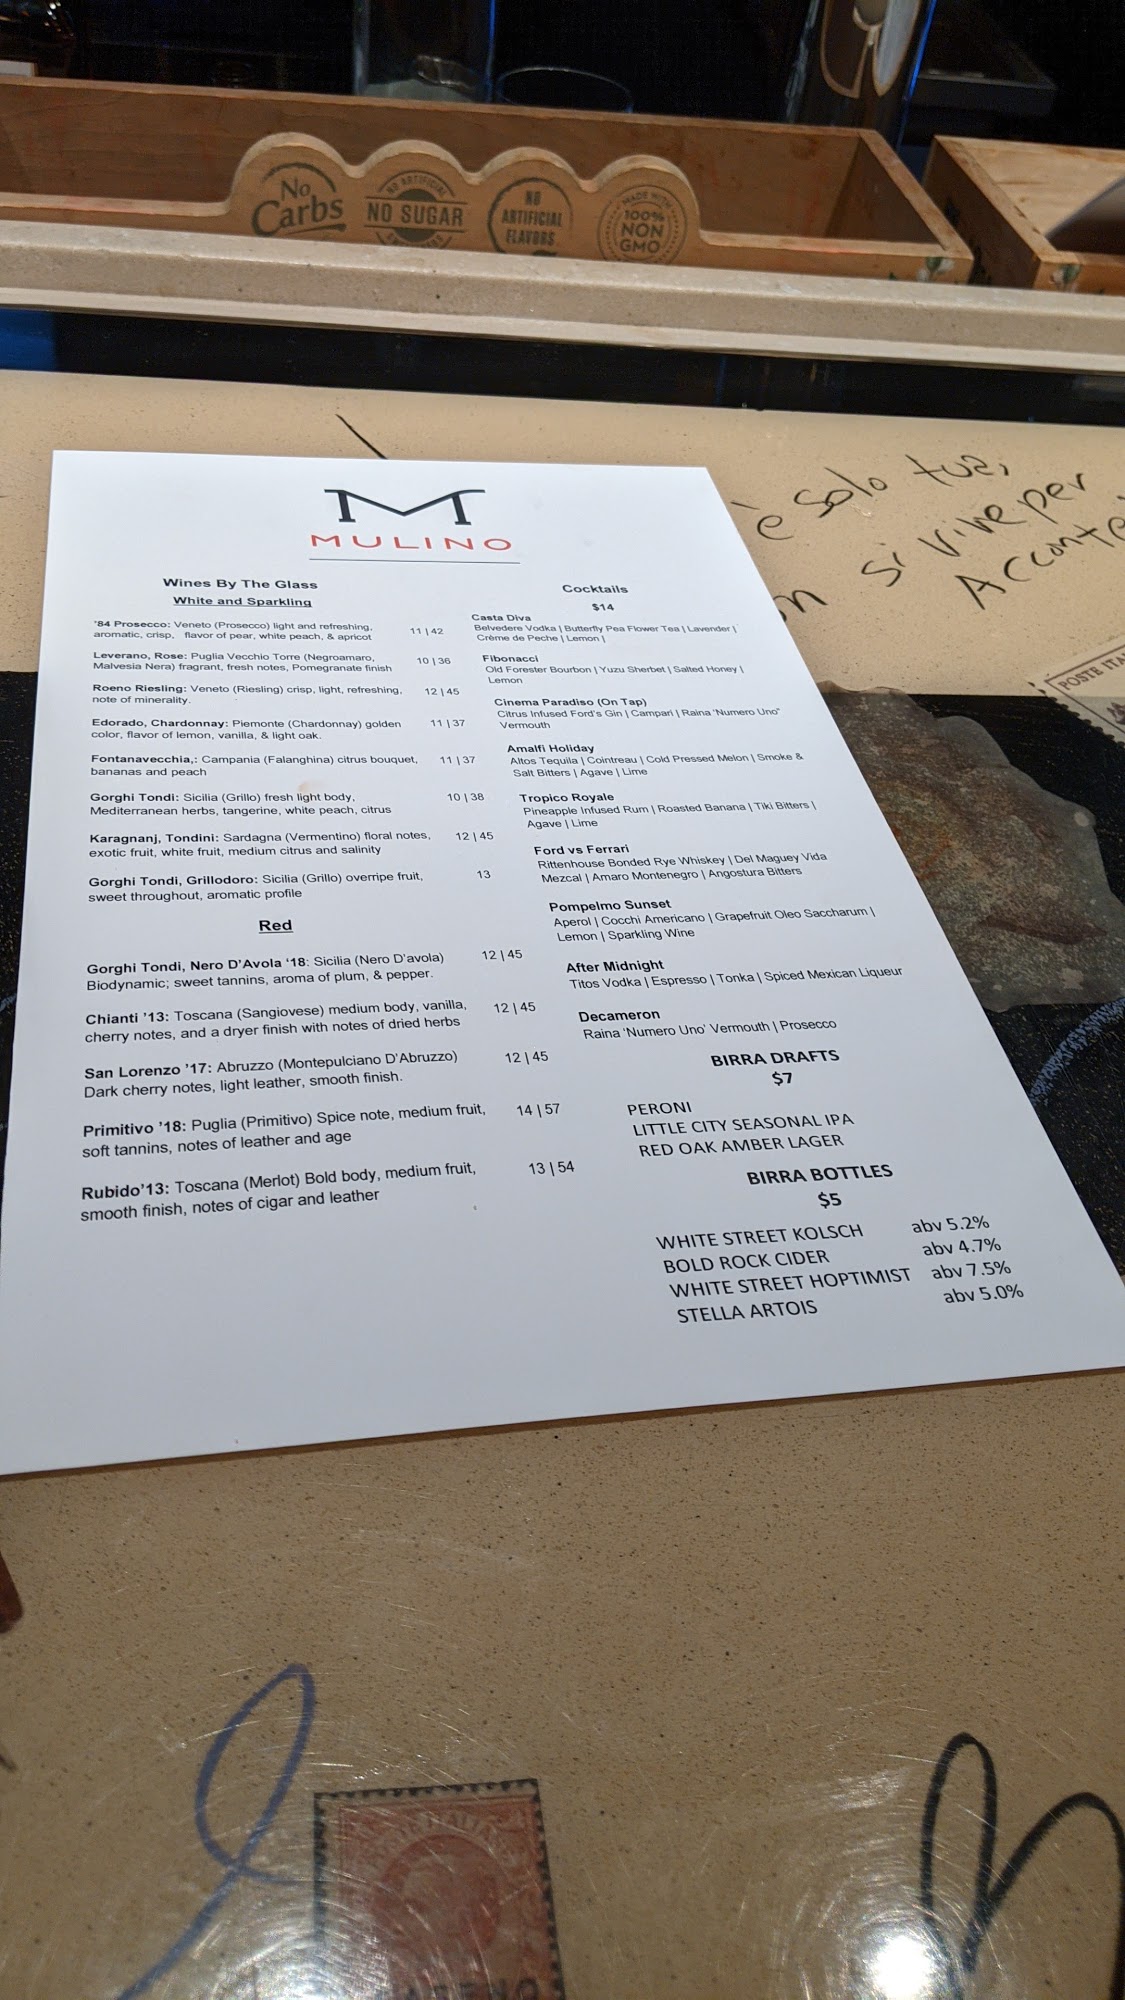 No
Carbs
NO ARTIFICIAL
NO SUGAR
NO
ARTIFICIAL
FLAVORS
MADE WITH
100%
NON
GMO
è solo tua,
si vive per
POSTE ITA
M
MULINO
Wines By The Glass
White and Sparkling
'84 Prosecco: Veneto (Prosecco) light and refreshing, 11 | 42
aromatic, crisp, flavor of pear, white peach, & apricot
Leverano, Rose: Puglia Vecchio Torre (Negroamaro, 10 | 36
Malvesia Nera) fragrant, fresh notes, Pomegranate finish
Roeno Riesling: Veneto (Riesling) crisp, light, refreshing, 12 | 45
note of minerality.
Edorado, Chardonnay: Piemonte (Chardonnay) golden 11 | 37
color, flavor of lemon, vanilla, & light oak.
Fontanavecchia,: Campania (Falanghina) citrus bouquet, 11 | 37
bananas and peach
Gorghi Tondi: Sicilia (Grillo) fresh light body, 10 | 38
Mediterranean herbs, tangerine, white peach, citrus
Karagnanj, Tondini: Sardagna (Vermentino) floral notes, 12 | 45
exotic fruit, white fruit, medium citrus and salinity
Gorghi Tondi, Grillodoro: Sicilia (Grillo) overripe fruit, 13
sweet throughout, aromatic profile
Red
Gorghi Tondi, Nero D'Avola '18: Sicilia (Nero D'avola) 12 | 45
Biodynamic; sweet tannins, aroma of plum, & pepper.
Chianti '13: Toscana (Sangiovese) medium body, vanilla, 12 | 45
cherry notes, and a dryer finish with notes of dried herbs
San Lorenzo '17: Abruzzo (Montepulciano D'Abruzzo) 12 | 45
Dark cherry notes, light leather, smooth finish.
Primitivo '18: Puglia (Primitivo) Spice note, medium fruit, 14 | 57
soft tannins, notes of leather and age
Rubido'13: Toscana (Merlot) Bold body, medium fruit, 13 | 54
smooth finish, notes of cigar and leather
Cocktails
$14
Casta Diva
Belvedere Vodka | Butterfly Pea Flower Tea | Lavender |
Crème de Peche | Lemon |
Fibonacci
Old Forester Bourbon | Yuzu Sherbet | Salted Honey |
Lemon
Cinema Paradiso (On Tap)
Citrus Infused Ford's Gin | Campari | Raina 'Numero Uno'
Vermouth
Amalfi Holiday
Altos Tequila | Cointreau | Cold Pressed Melon | Smoke &
Salt Bitters | Agave | Lime
Tropico Royale
Pineapple Infused Rum | Roasted Banana | Tiki Bitters |
Agave | Lime
Ford vs Ferrari
Rittenhouse Bonded Rye Whiskey | Del Maguey Vida
Mezcal | Amaro Montenegro | Angostura Bitters
Pompelmo Sunset
Aperol | Cocchi Americano | Grapefruit Oleo Saccharum |
Lemon | Sparkling Wine
After Midnight
Titos Vodka | Espresso | Tonka | Spiced Mexican Liqueur
Decameron
Raina 'Numero Uno' Vermouth | Prosecco
BIRRA DRAFTS
$7
PERONI
LITTLE CITY SEASONAL IPA
RED OAK AMBER LAGER
BIRRA BOTTLES
$5
WHITE STREET KOLSCH abv 5.2%
BOLD ROCK CIDER abv 4.7%
WHITE STREET HOPTIMIST abv 7.5%
STELLA ARTOIS abv 5.0%